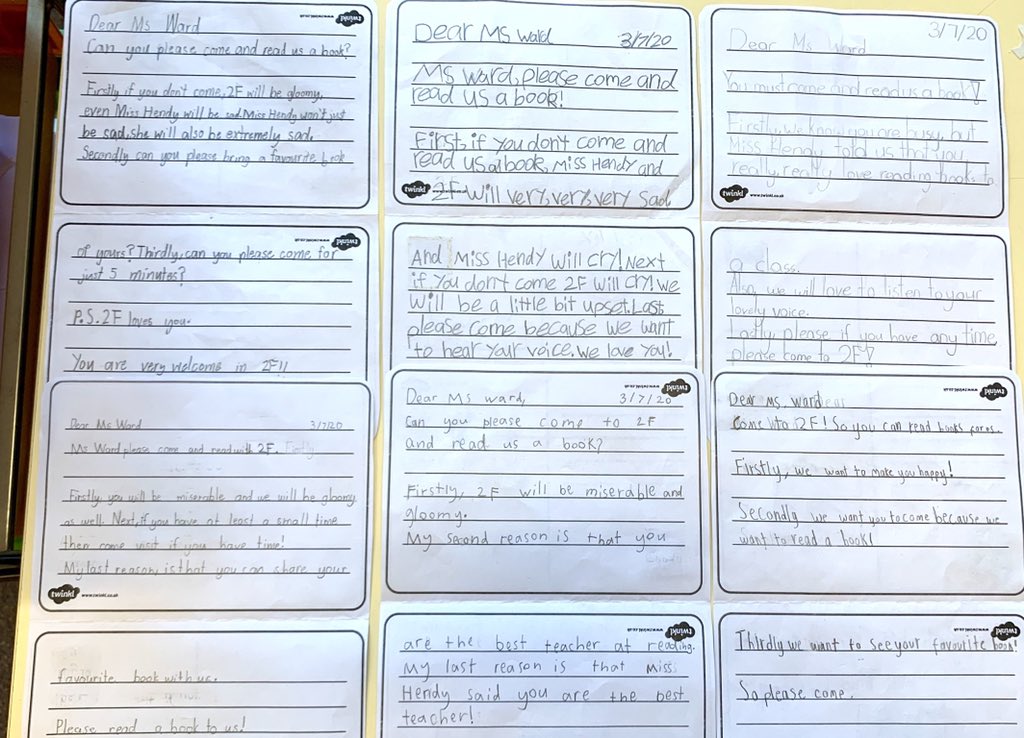 Dear Ms Ward
Can you please come and read us a book?
Firstly if you don't come, 2F will be gloomy,
even Miss Hendy will be sad. Miss Hendy won't just
be sad, she will also be extremely sad.
Secondly can you please bring a favourite book
of yours? Thirdly, can you please come for
just 5 minutes?
P.S. 2F loves you.
You are very welcome in 2F!!
Dear Ms Ward 3/7/20
Ms Ward, please come and
read us a book!
First, if you don't come and
read us a book, Miss Hendy and
2F will very, very, very sad
And Miss Hendy will cry! Next
if you don't come 2F will cry! we
will be a little bit upset. Last
please come because we want
to hear your voice. We love you!
3/7/20
Dear Ms Ward
You must come and read us a book!
Firstly, we know you are busy, but
Miss Hendy told us that you
really, really love reading books to
a class.
Also, we will love to listen to your
lovely voice.
Lastly, please if you have any time
please come to 2F!
Dear Ms Ward 3/7/20
Ms Ward please come and read with 2F. Firstly
Firstly, you will be miserable and we will be gloomy
as well. Next, if you have at least a small time
then come visit if you have time!
My last reason, is that you can share your
favourite book with us.
Please read a book to us!
Dear Ms Ward, 3/7/20
Can you please come to 2F
and read us a book?
Firstly, 2F will be miserable and
gloomy.
My second reason is that you
are the best teacher at reading.
My last reason is that Miss
Hendy said you are the best
teacher!
Dear Ms. Ward
Come to 2F! So you can read books for us.
Firstly, we want to make you happy!
Secondly we want you to come because we
want to read a book!
Thirdly we want to see your favourite book!
So please come.
twinkl
www.twinkl.co.uk
twinkl
www.twinkl.co.uk
twinkl
www.twinkl.co.uk
twinkl
www.twinkl.co.uk
twinkl
www.twinkl.co.uk
twinkl
www.twinkl.co.uk
twinkl
www.twinkl.co.uk
twinkl
www.twinkl.co.uk
twinkl
www.twinkl.co.uk